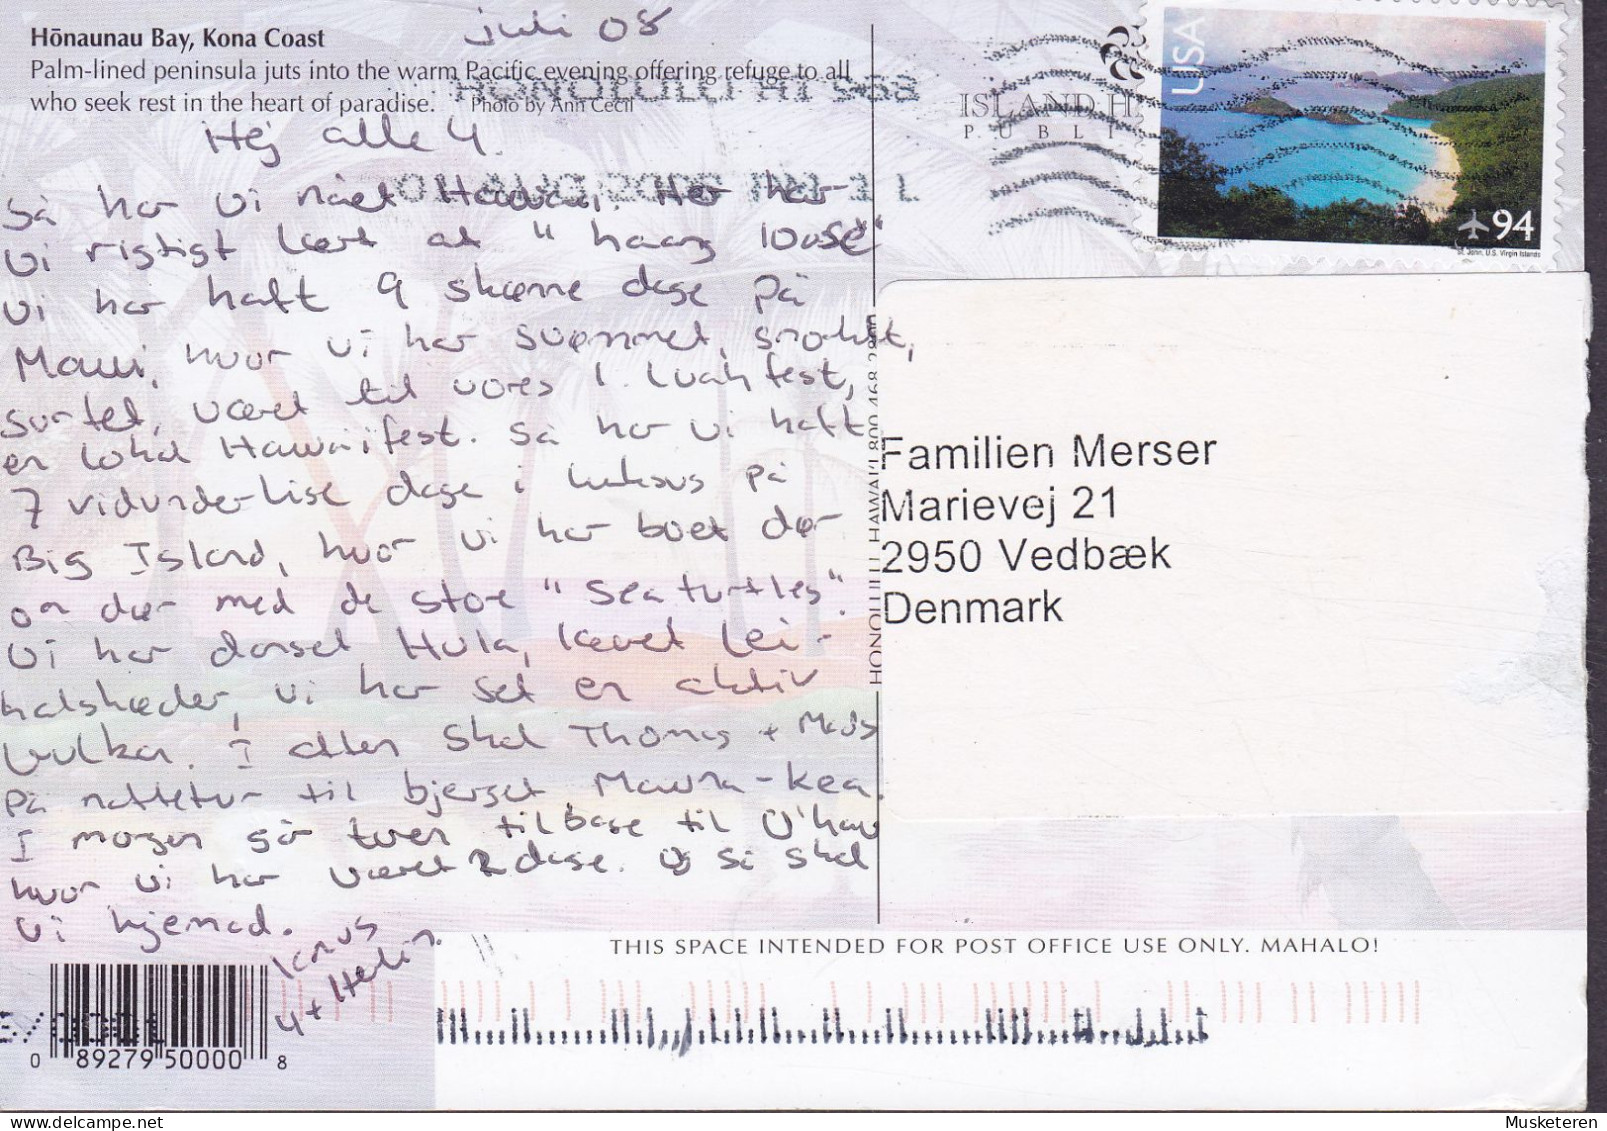 Hōnaunau Bay, Kona Coast
Palm-lined peninsula juts into the warm Pacific evening offering refuge to all
who seek rest in the heart of paradise. Photo by Ann Cecil
juli 08
HONOLULU HI 968
ISLAND H
PUBLI
USA
94
St. John, U.S. Virgin Islands
Hej alle 4
Så har vi nået Hawaii. Her har
vi rigtigt lært at "haang loose"
vi har haft 9 skønne dage på
Maui, hvor vi har svømmet, snorklet,
surfet, været til vores 1. Luahfest,
en lokal Hawaiifest. Så har vi haft
7 vidunderlige dage i luksus på
Big Island, hvor vi har boet dør
om dør med de store "Sea turtles".
Vi har danset Hula, lavet Lei-
halskæder, vi har set en aktiv
vulkan. I aften skal Thomas + Mads
på nattetur til bjerget Mauna-kea.
I morgen går turen tilbage til O'hau
hvor vi har været 2 dage. Og så skal
vi hjemad.
Knus
4 +
HONOLULU, HAWAI'I 800 468 2800
Familien Merser
Marievej 21
2950 Vedbæk
Denmark
THIS SPACE INTENDED FOR POST OFFICE USE ONLY. MAHALO!
0 89279 50000 8
Musketeren